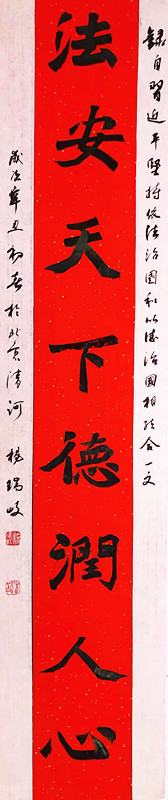 錄自習近平堅持依法治国和以德治國相结合一文
法安天下德潤人心
歲次辛丑初春於北京清河 楊瑞岐